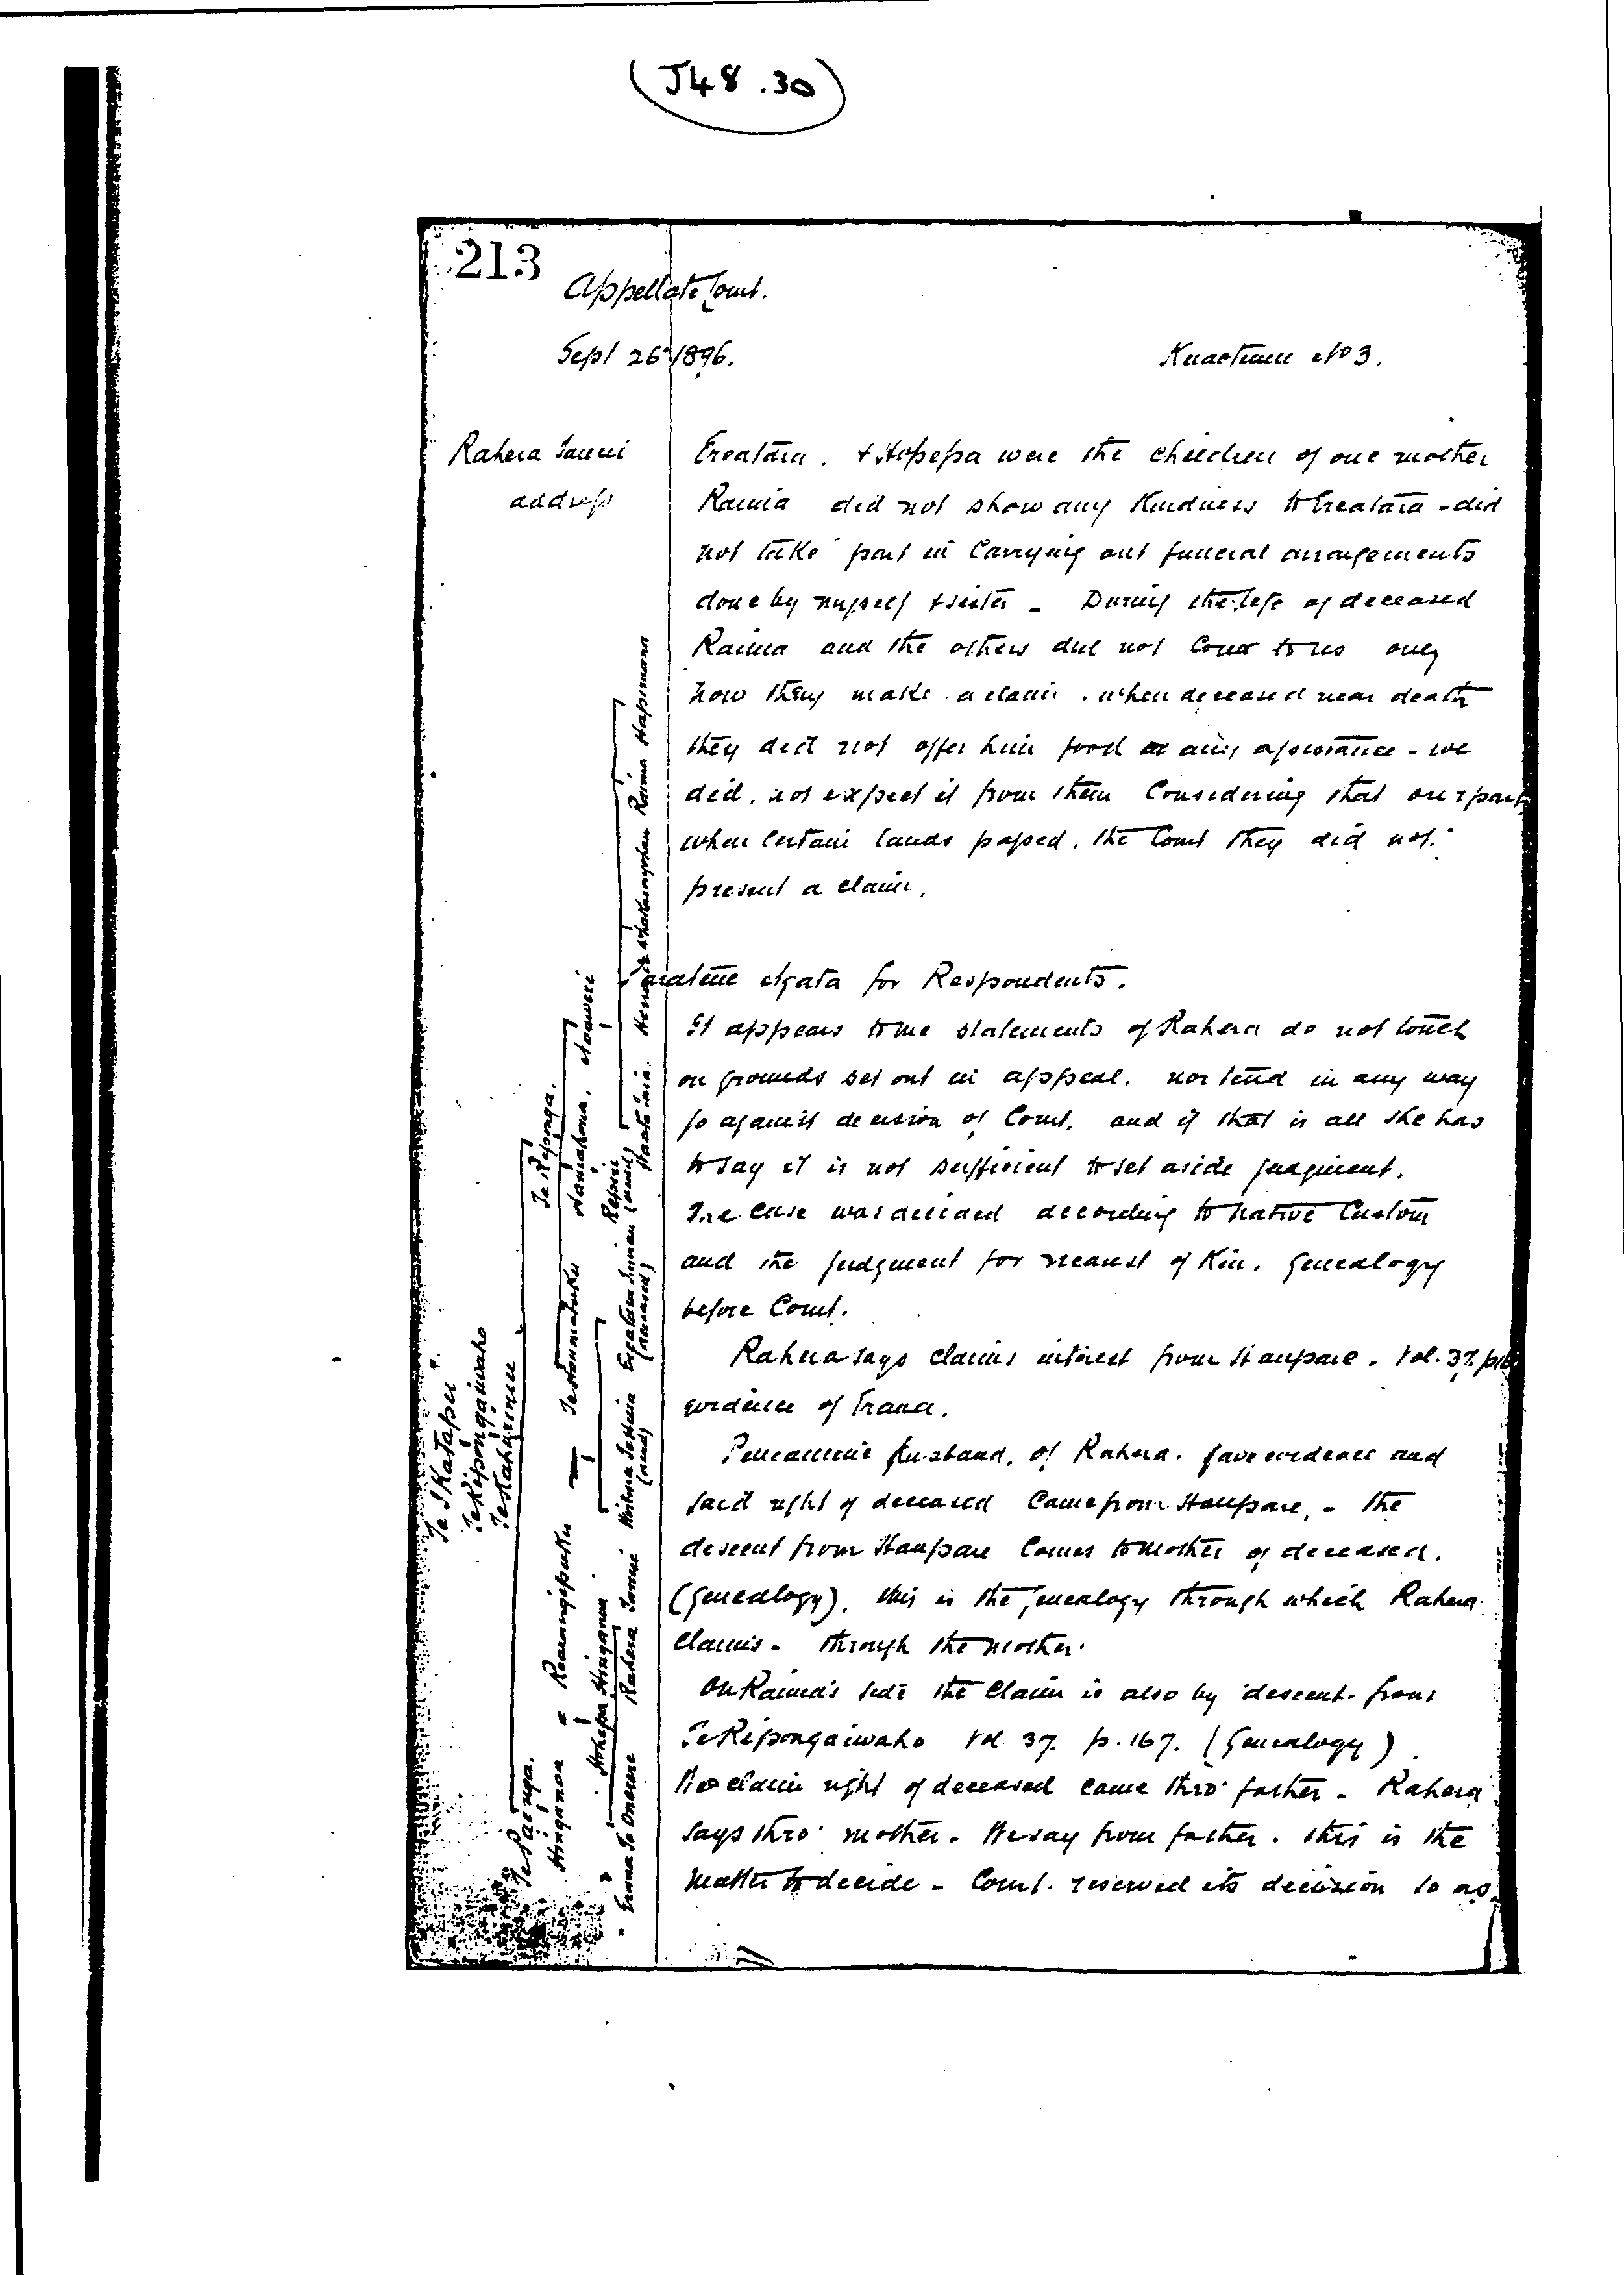 (J48.30)
213
Appellate Court.
Sept 26 1896.
No 3.
Rahera
address
Ereatara. & Hohepa were the children of one mother
Raima did not show any kindness to Ereatara - did
not take part in carrying out funeral arrangements
done by myself & sister - During the life of deceased
Raima and the others did not come to us only
now they make a claim. when deceased near death
they did not offer him food or any assistance - we
did. not expect it from them considering that on r part
when certain lands passed. the Court they did not.
present a claim.
Ngata for Respondents.
It appears to me statements of Rahera do not touch
on grounds set out in appeal. nor tend in any way
go against decision of Court. and if that is all she has
to say it is not sufficient to set aside judgment.
The case was decided according to native Custom
and the judgment for nearest of Kin. Genealogy
before Court.
Rahera says claims interest from Haupare. Vol. 37.
evidence of Erana.
husband. of Rahera. gave evidence and
said right of deceased came from Haupare, - the
descent from Haupare comes to mother of deceased.
(Genealogy). this is the Genealogy through which Rahera
claims - through the mother.
On Raima's side the claim is also by descent. from
Te Kipongaiwaho Vol. 37. p. 167. (Genealogy)
We claim right of deceased came thro' father - Rahera
says thro' mother. We say from father. this is the
matter to decide - Court. reserved its decision so as
Te Ikatapu
Te Kipongaiwaho
Te Kahurimu
Te Paenga.
Te Raponga.
Hinganoa = Rearangipuku
Hohepa Hinganoa
Rahera
Raima Hapimana
(deceased)